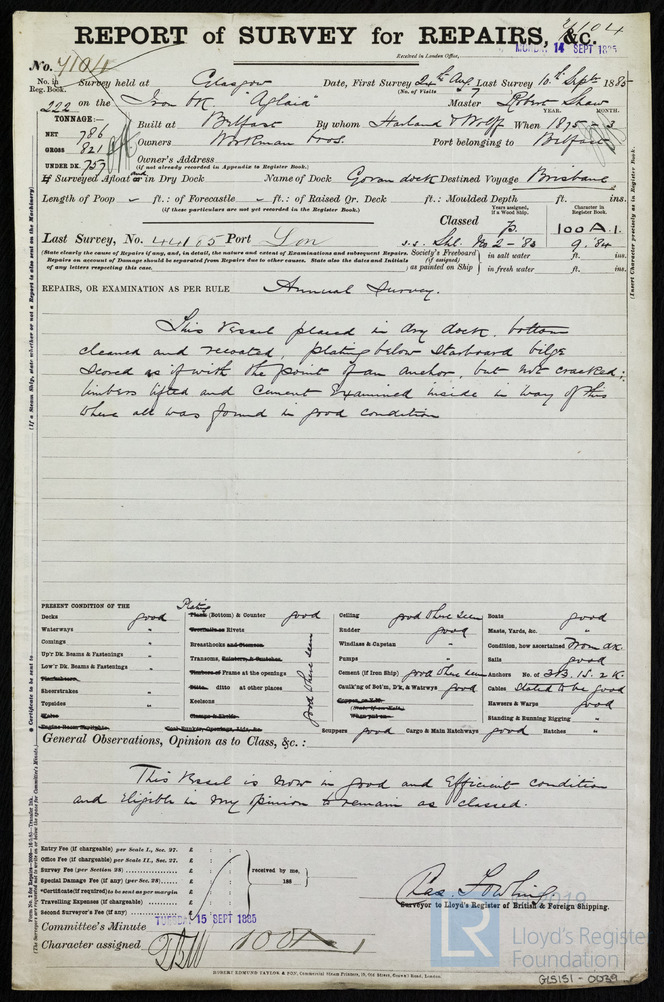 7104
REPORT of SURVEY for REPAIRS, &c.
Received in London Office, MONDAY 14 SEPT 1885
No. 7104
No. in Reg. Book. Survey held at Glasgow Date, First Survey 24th Aug Last Survey 10th Sept 1885
(No. of Visits 7)
222 on the Iron Bk. "Aglaia" Master Robert Shaw
TONNAGE:— YEAR. MONTH.
NET 786 Built at Belfast By whom Harland & Wolff When 1875 - 3
GROSS 821 Owners Workman Bros. Port belonging to Belfast
UNDER DK. 757 Owner's Address
(if not already recorded in Appendix to Register Book.)
If Surveyed Afloat and in Dry Dock Name of Dock Govan dock Destined Voyage Brisbane
Length of Poop - ft.: of Forecastle - ft.: of Raised Qr. Deck ft.: Moulded Depth ft. ins.
(if these particulars are not yet recorded in the Register Book.)
Years assigned, if a Wood Ship. Character in Register Book.
Classed 100 A.1.
Last Survey, No. 44165 Port Lon s.s. Shl. No 2 - '84 9. '84
(State clearly the cause of Repairs if any, and, in detail, the nature and extent of Examinations and subsequent Repairs.
Repairs on account of Damage should be separated from Repairs due to other causes. State also the dates and Initials
of any letters respecting this case.
Society's Freeboard (if assigned) as painted on Ship
in salt water ft. ins.
in fresh water ft. ins.
REPAIRS, OR EXAMINATION AS PER RULE Annual Survey.
This vessel placed in dry dock, bottom
cleaned and recoated, plating below starboard bilge
scored as if with the point of an anchor, but not cracked;
limbers lifted and cement examined inside in way of this
where all was found in good condition
PRESENT CONDITION OF THE
Decks good
Waterways "
Comings "
Up'r Dk. Beams & Fastenings "
Low'r Dk. Beams & Fastenings "
Planksheers
Sheerstrakes "
Topsides "
Wales
Engine Room Skylights
Plating
Plank (Bottom) & Counter good
Treenails or Rivets
Breasthooks and Stemson
Transoms,
Timbers or Frame at the openings
Ditto, ditto at other places
Keelsons
Clamps & Shelfs
Coal Bunker, Openings, Lids, &c.
good where seen
Ceiling good where seen
Rudder good
Windlass & Capstan "
Pumps "
Cement (if Iron Ship) good where seen
Caulk'ng of Bot'm, D'k, & Watrwys good
Copper, or Y.M.
(State if on Felt)
When put on
Scuppers good Cargo & Main Hatchways good Hatches "
Boats good
Masts, Yards, &c. "
Condition, how ascertained From dk.
Sails good
Anchors No. of 3B. 1S. 2K.
Cables stated to be good
Hawsers & Warps good
Standing & Running Rigging "
General Observations, Opinion as to Class, &c. :
This Vessel is now in good and efficient condition
and eligible in my opinion to remain as classed.
Entry Fee (if chargeable) per Scale I., Sec. 27. £ : :
Office Fee (if chargeable) per Scale II., Sec. 27. £ : :
Survey Fee (per Section 28) £ : :
Special Damage Fee (if any) (per Sec. 28) £ : :
*Certificate (if required) to be sent as per margin £ : :
Travelling Expenses (if chargeable) £ : :
Second Surveyor's Fee (if any) £ : :
received by me,
188
Surveyor to Lloyd's Register of British & Foreign Shipping.
Committee's Minute TUESDAY 15 SEPT 1885
Character assigned 100 A 1
ROBERT EDMUND TAYLOR & SON, Commercial Steam Printers, 19, Old Street, Goswell Road, London.
(If a Steam Ship, state whether or not a Report is also sent on the Machinery.)
(Insert Character precisely as in Register Book.)
* Certificate to be sent to
(The Surveyors are requested not to write on or below the space for Committee's Minute.)
2019
LR
Lloyd's Register
Foundation
GLS151 - 0039